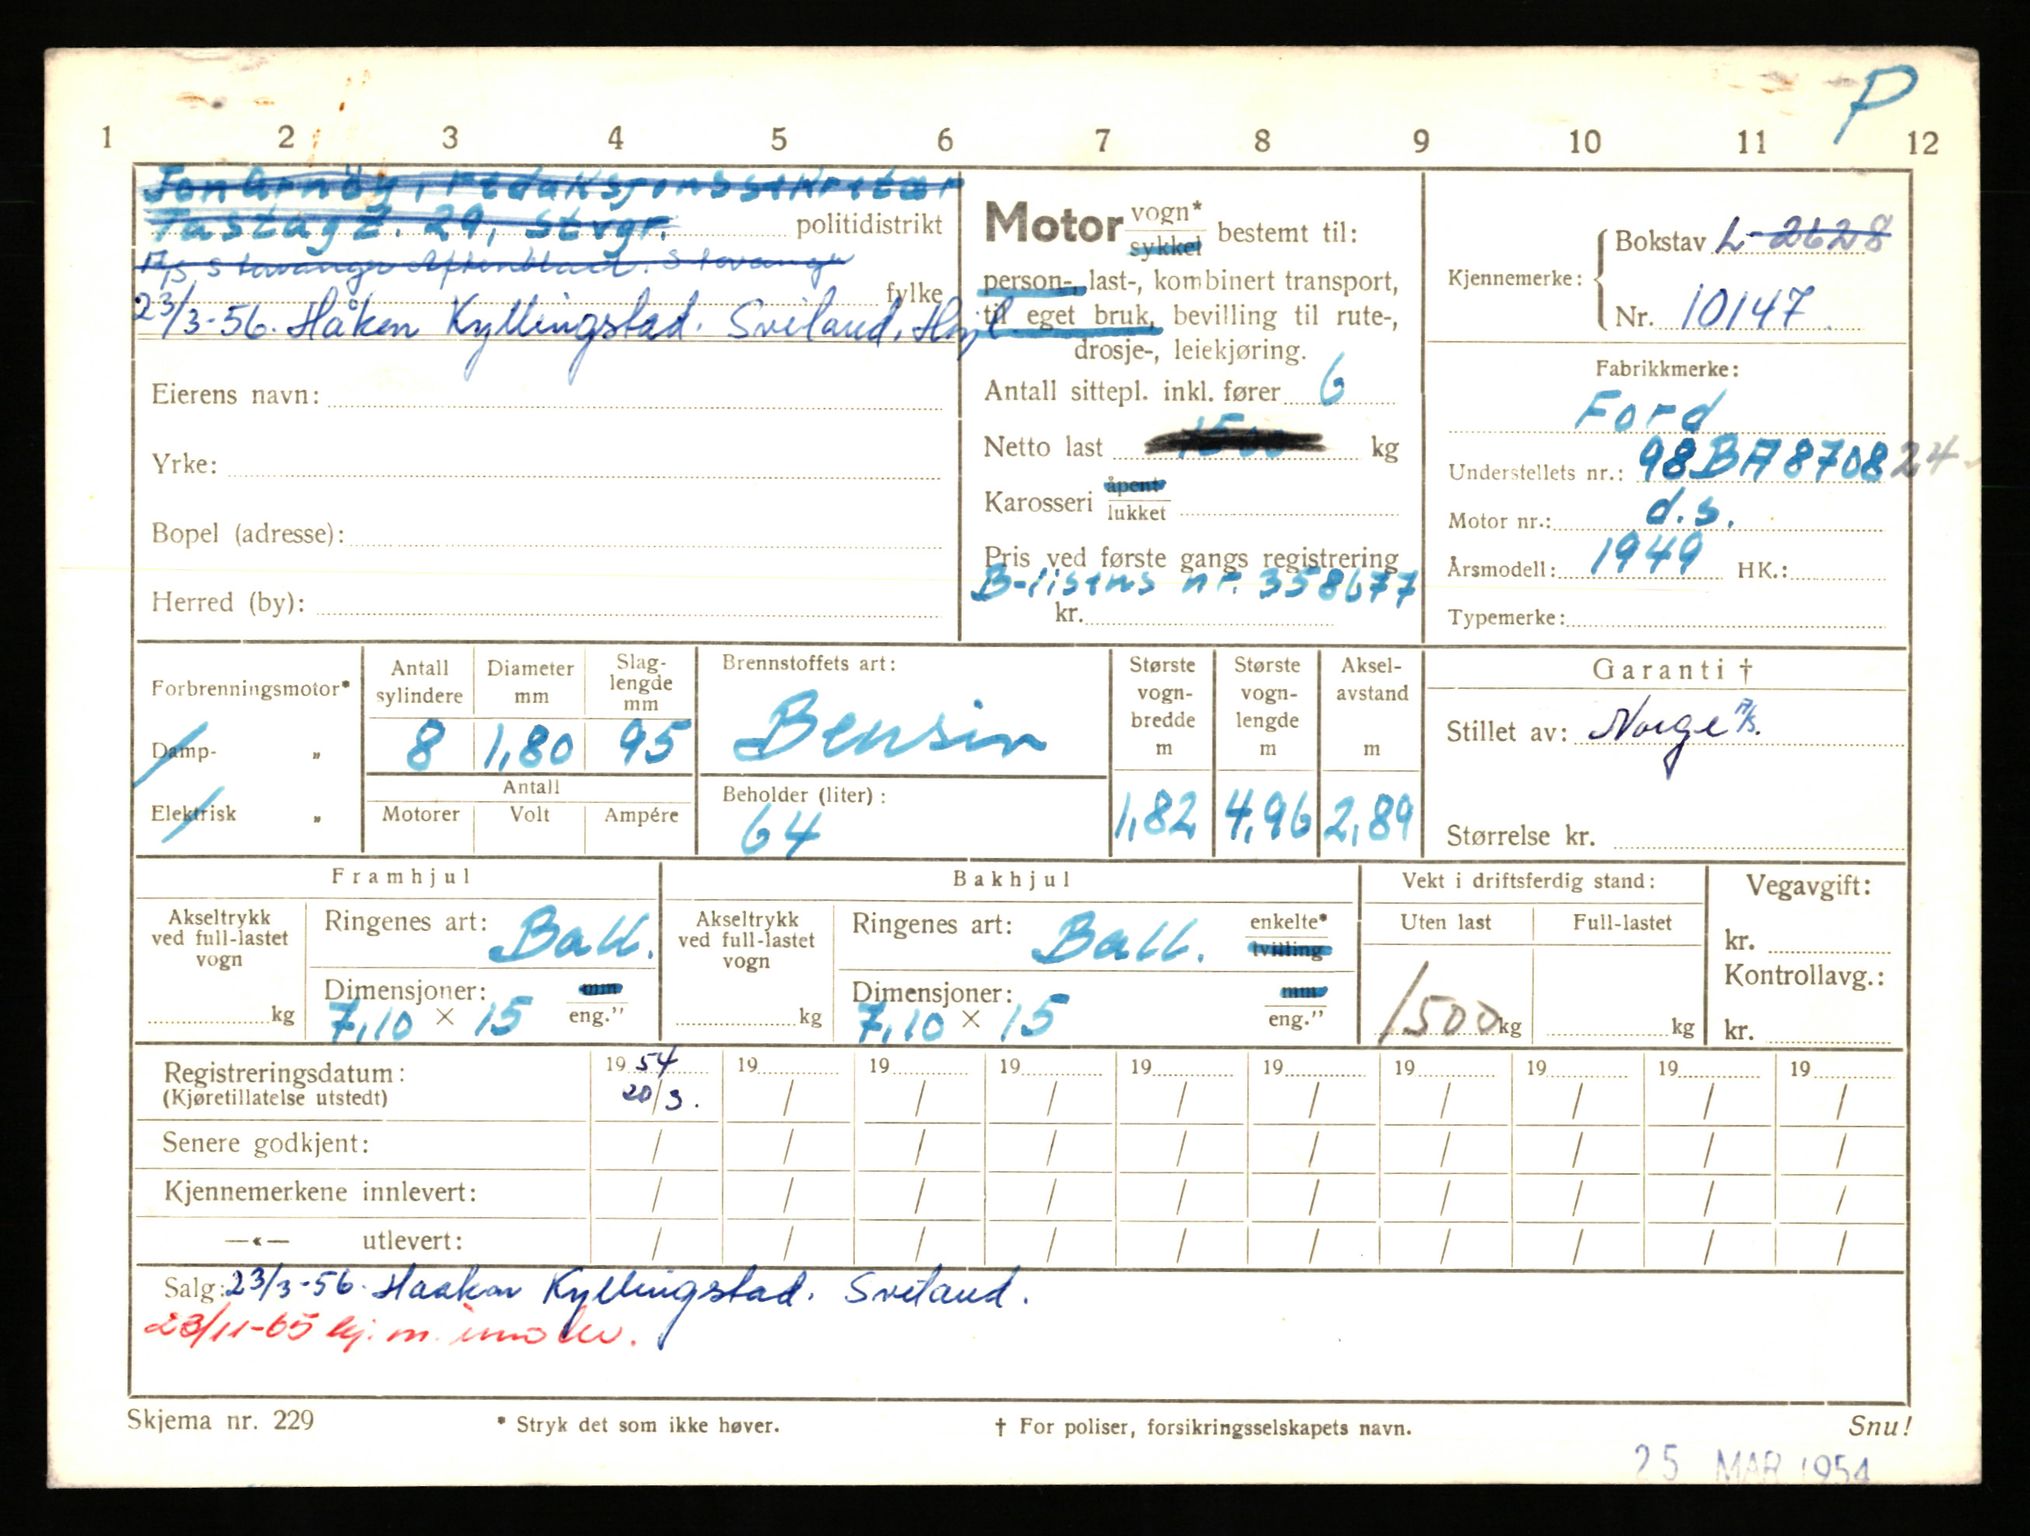 P
1 2 3 4 5 6 7 8 9 10 11 12
Jon Arnöy, redaksjonssekretær
Tastagt. 29, Stvgr. politidistrikt
A/S Stavanger Aftenblad. Stavanger
fylke
23/3-56. Håken Kyllingstad. Sviland,
Eierens navn:
Yrke:
Bopel (adresse):
Herred (by):
Motor vogn* sykkel bestemt til:
person-, last-, kombinert transport,
til eget bruk, bevilling til rute-,
drosje-, leiekjøring.
Antall sittepl. inkl. fører 6
Netto last 1500 kg
Karosseri åpent lukket
Pris ved første gangs registrering
B-lisens nr. 358677
kr.
Kjennemerke: Bokstav L-2628
Nr. 10147
Fabrikkmerke:
Ford
Understellets nr.: 98BA870824
Motor nr.: d.s.
Årsmodell: 1949 HK.:
Typemerke:
Forbrenningsmotor*
Damp- „
Elektrisk „
Antall sylindere 8
Diameter mm 1,80
Slag-lengde mm 95
Antall
Motorer Volt Ampére
Brennstoffets art:
Bensin
Beholder (liter):
64
Største vogn-bredde m 1,82
Største vogn-lengde m 4,96
Aksel-avstand m 2,89
Garanti †
Stillet av: Norge A/S.
Størrelse kr.
Framhjul
Akseltrykk ved full-lastet vogn kg
Ringenes art: Ball.
Dimensjoner: mm
7,10 × 15 eng."
Bakhjul
Akseltrykk ved full-lastet vogn kg
Ringenes art: Ball. enkelte* tvilling
Dimensjoner: mm
7,10 × 15 eng."
Vekt i driftsferdig stand:
Uten last Full-lastet
1500 kg kg
Vegavgift:
kr.
Kontrollavg.:
kr.
Registreringsdatum: 1954 19 19 19 19 19 19 19 19 19
(Kjøretillatelse utstedt) 20/3. / / / / / / / / /
Senere godkjent: / / / / / / / / / /
Kjennemerkene innlevert: / / / / / / / / / /
—«— utlevert: / / / / / / / / / /
Salg: 23/3-56. Haakon Kyllingstad. Sviland.
23/11-65 kj. m. innlev.
Skjema nr. 229 * Stryk det som ikke høver. † For poliser, forsikringsselskapets navn. Snu!
25 MAR 1954